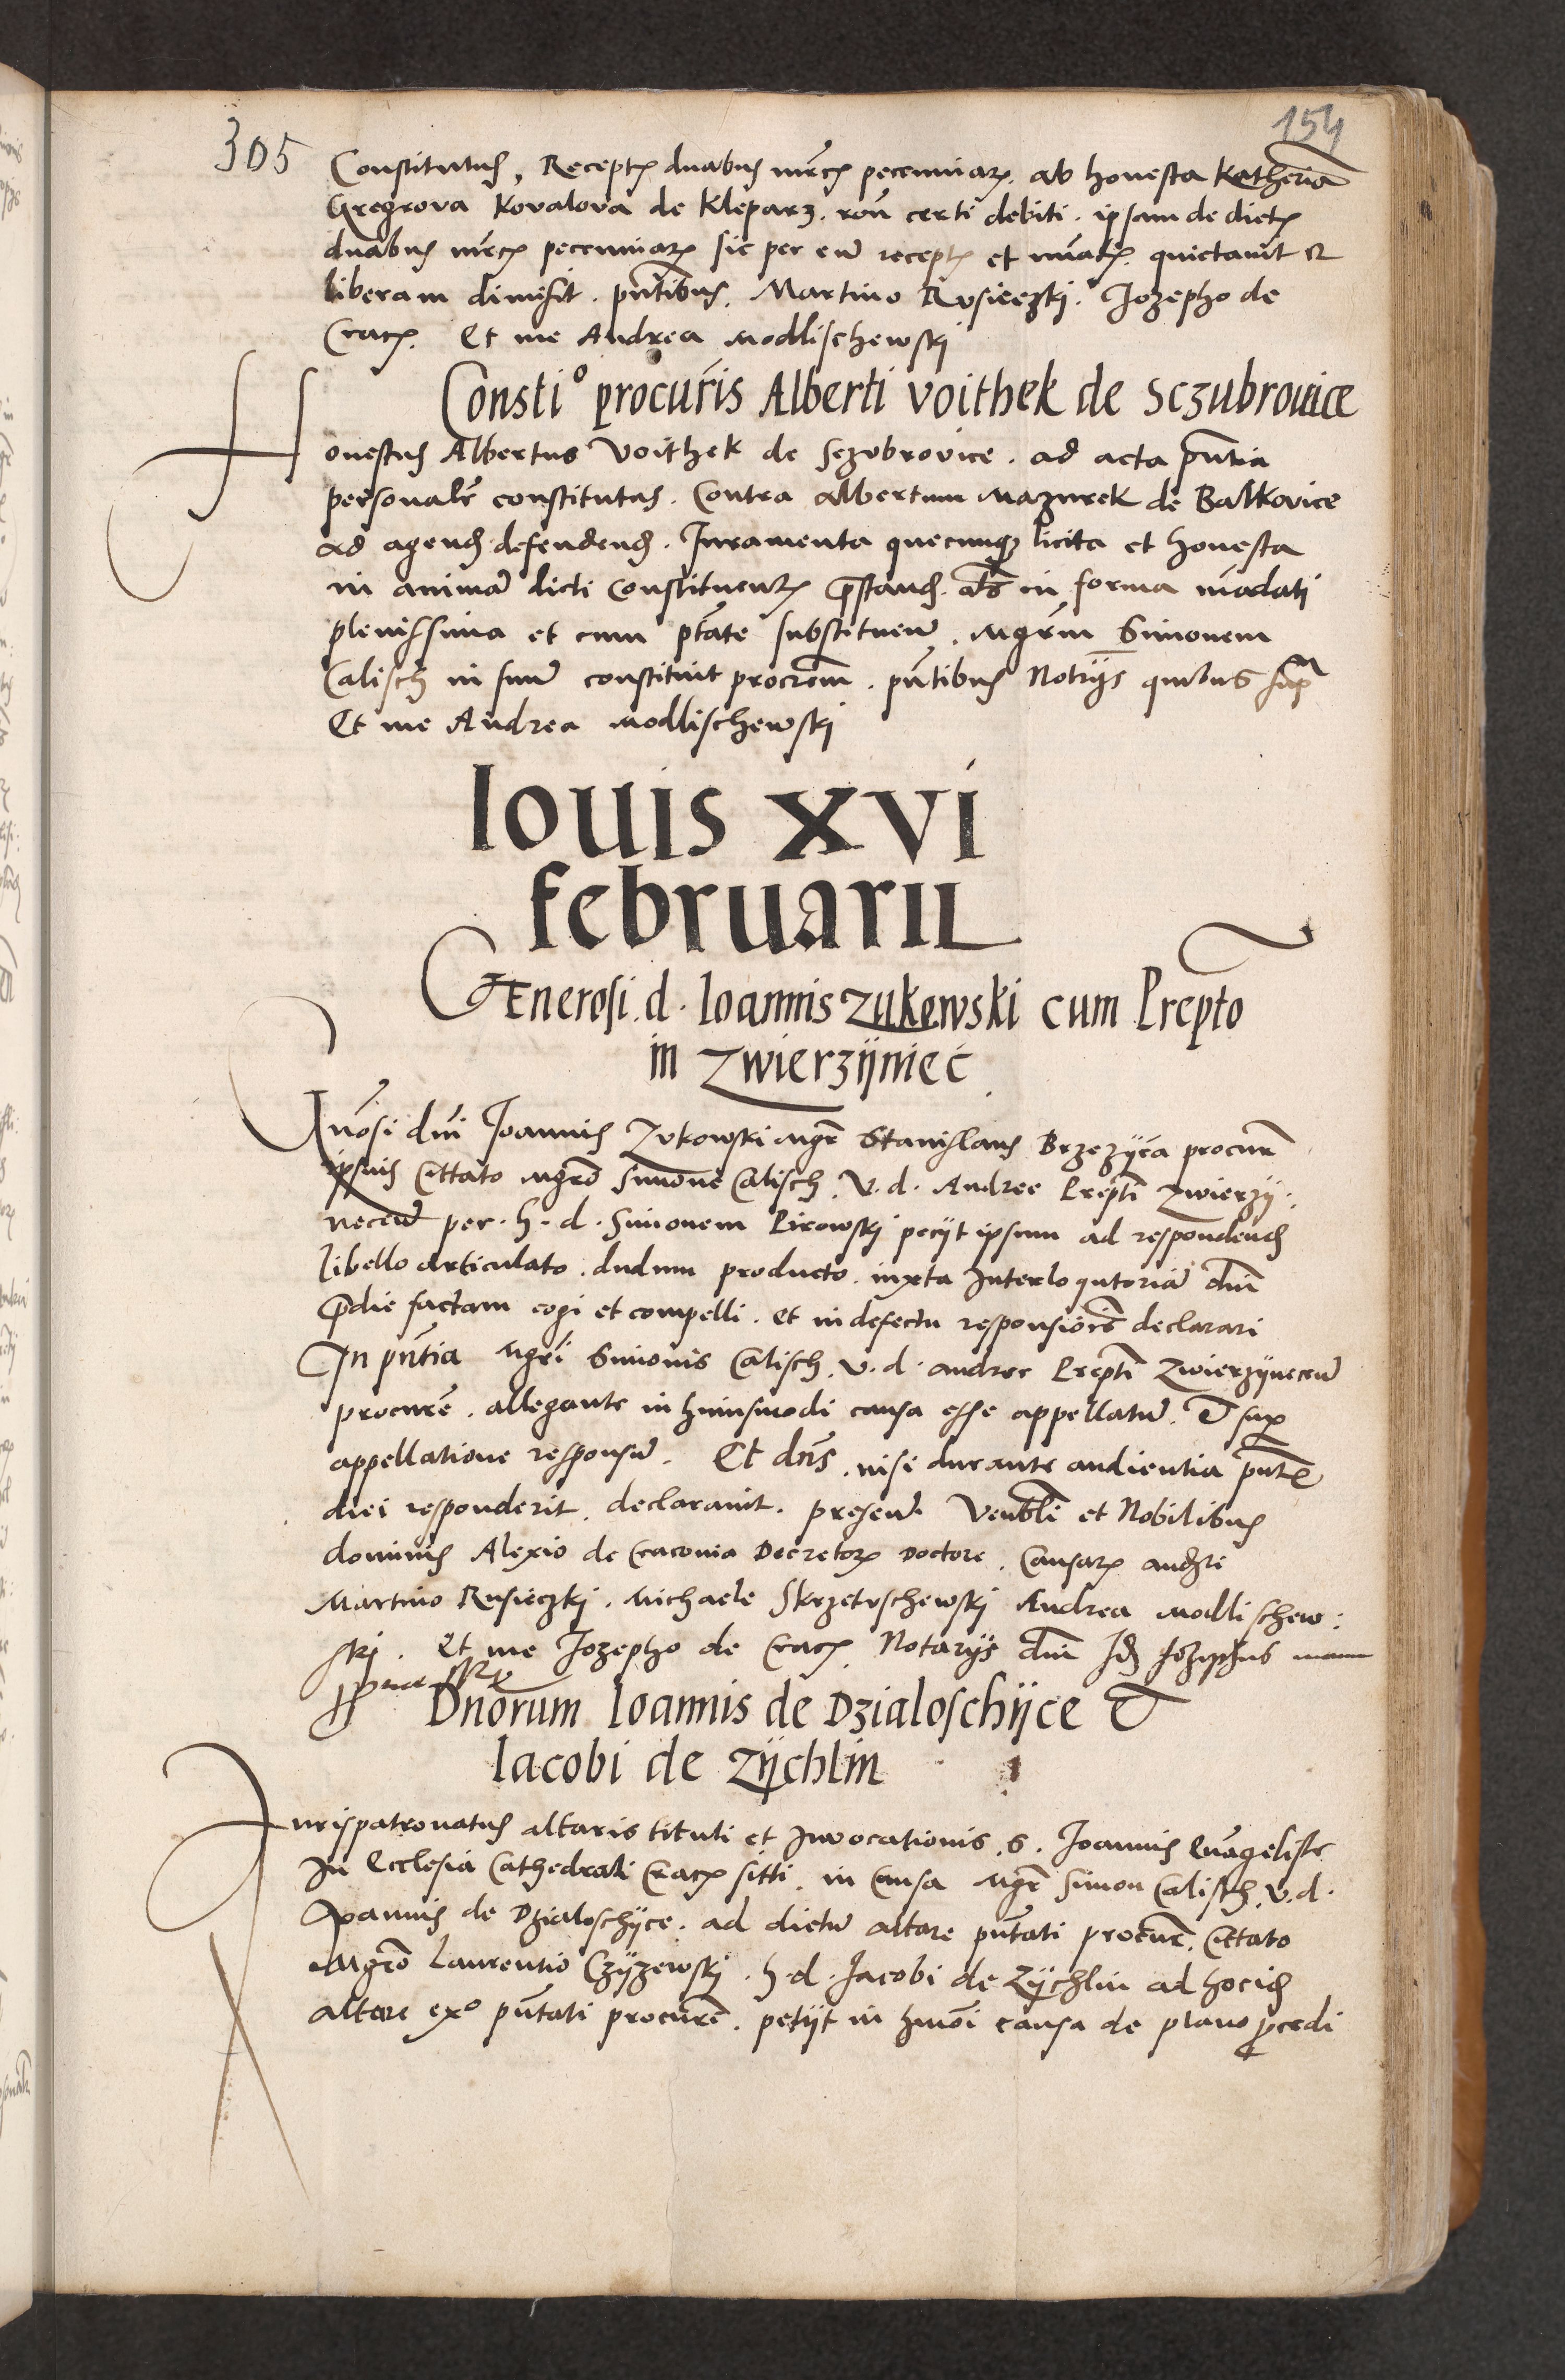 305
154
Constitutus, Receptꝭ duabus mrcꝭ pecuniarꝭ ab honesta Katherina
Gregrova Kovalova de Kleparz. ron̄ certi debiti. ipsam de dictꝭ
duabus mrcꝭ pecuniarꝭ sic per eū receptꝭ et nūatꝭ quietauit et
liberam dimisit. pn̄tibus. Martino Rusieczki. Jozepho de
Cracꝭ. Et me Andrea Modlischewski
Constio procur̄is Alberti Voithek de Sczubrouice
Honestus Albertus Voithek de Sczubrovice. ad acta pn̄tia
personalr̄ constitutus. Contra Albertum Mazurek de Balkovice
ad agend. defendend. Juramenta quecunqz licita et honesta
in animā dicti Constituentꝭ p̄stand. ats̄ in forma mādati
plenissima et cum ptāte substituen̄. Mgrm̄ Simonem
Calisch in suū constituit procrem̄. pn̄tibus Notrijs quibus sup̄
Et me Andrea Modlischewski
Iouis XVI
februarii
Generosi d. Ioannis Zukowski cum Prepto
in Zwierzijniec
Gn̄osi dn̄i Joannis Zukowski Mgr̄ Stanislaus Brzezyca procur̄
ipsius Cittato Mgr̄o Simone Calisch. V. d. Andree Prepti Zwierzy:
necen̄ per. h. d. Simonem Pirowski peciit ipsum ad respondend
libello articulato. dudum producto. iuxta Interloqutoriā dn̄i
p̄die factam cogi et compelli. Et in defectu responsionis declarari
In pn̄tia Mgr̄i Simonis Calisch. V. d. Andree Prepti Zwierzynecen̄
procure. allegante in huiusmodi causa esse appellatū. et sup
appellatione responsū. Et dn̄s. nisi durante audientia pn̄tꝭ
diei responderit. declarauit. presen̄. Venbli et Nobilibus
dominis Alexio de Craconia Decretorꝭ Doctore. Causarꝭ Audre
Martino Rusieczki. Michaele Skrzetuschewski Andrea Modlischew:
ski. Et me Jozepho de Cracꝭ Notarijs dn̄i Id Jozephus manu
Dnorum Ioannis de Dzialoschijce et
Iacobi de Zijchlin
Jurispatronatus altaris tituli et Inuocationis. S. Joannis Euāgeliste
In Ecclesia Cathedrali Cracꝭ sitti. in Causa Mgr̄ Simon Calisch. V. d.
Joannis de Dzialoschyce. ad dictū altare pn̄tati procur̄. Cittato
Mgr̄o Laurentio Czyzewski. h. d. Jacobi de Zychlin ad hoc id
altare exo pn̄tati procure. petiit in hmōi causa de plano p̄cedi